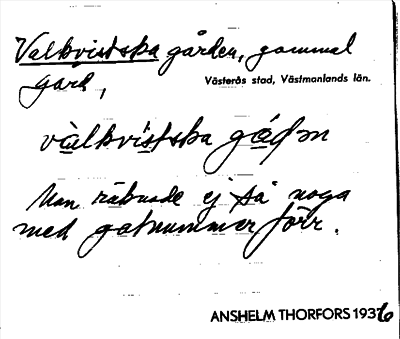 Valkvistska gården, gammal
gård,
Västerås stad, Västmanlands län.
valkvistska gåɖn
Man räknade ej så noga
med gatnummer förr.
ANSHELM THORFORS 1936